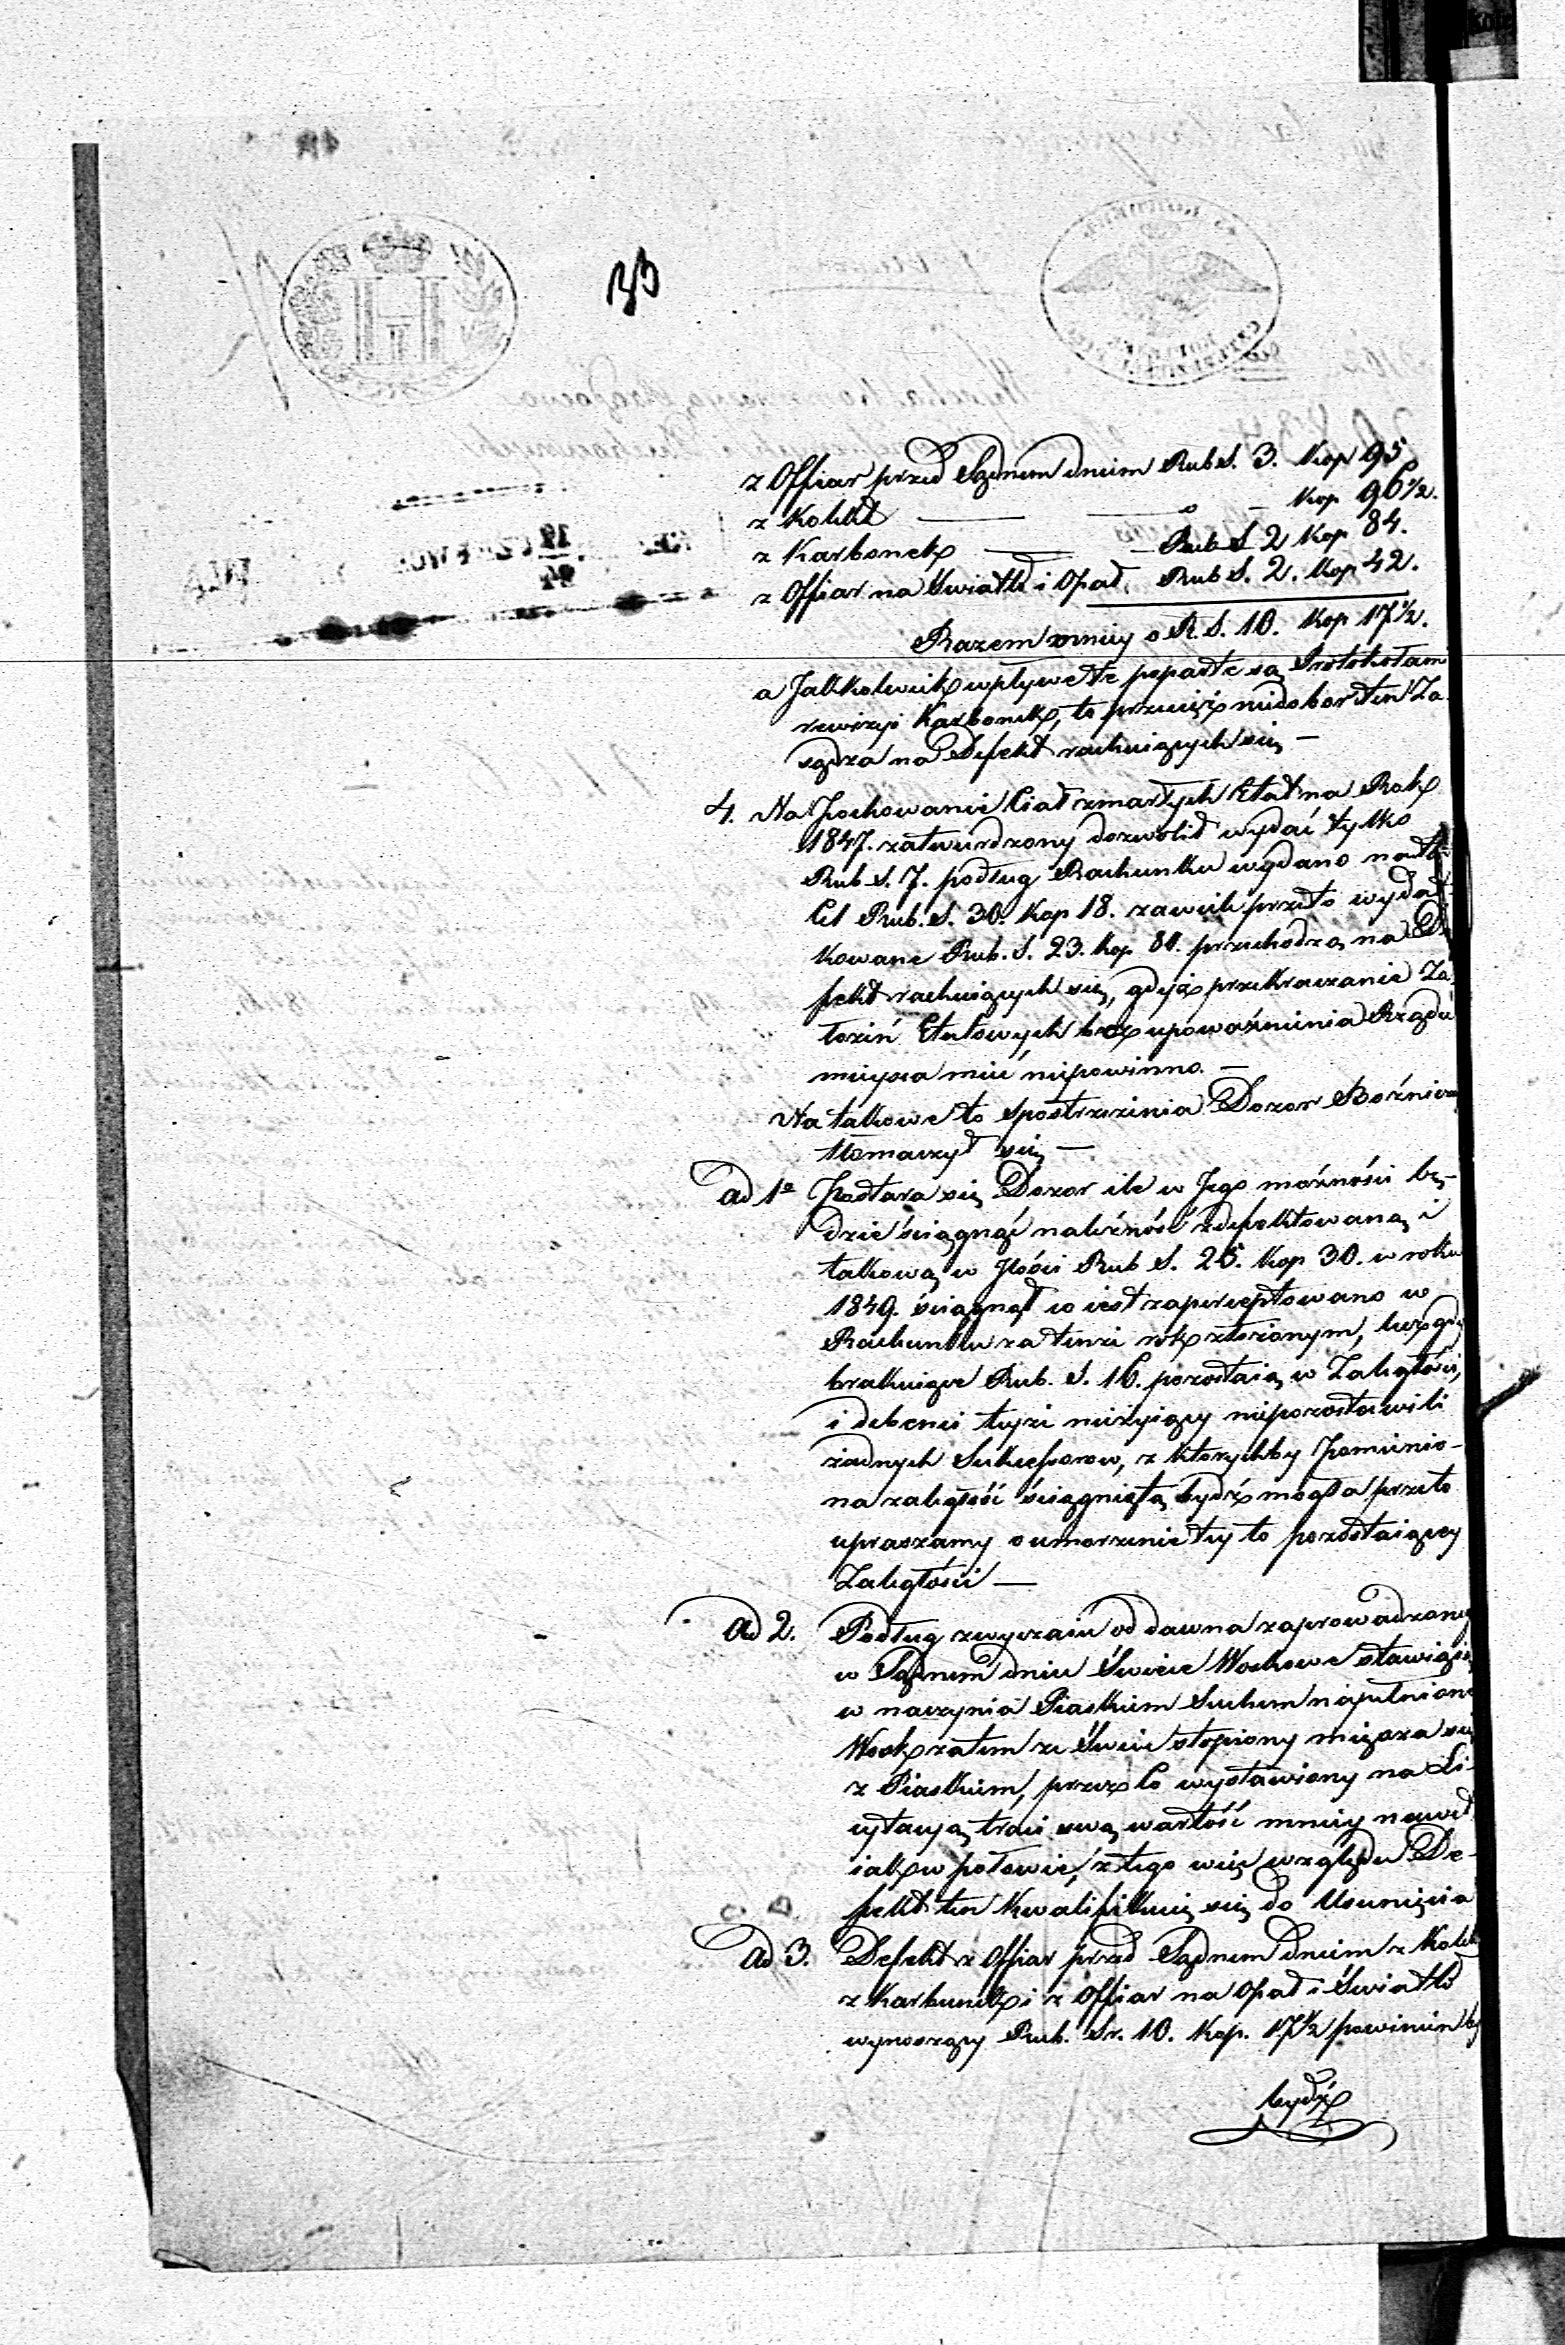 33
z Offiar przed Sądnem dniem Rub S. 3. Kop 95
z Kolekt — — „ — Kop 96 1/2.
z Karbonek — — Rub S 2 Kop 84.
z Offiar na Światło i Opał. Rub S. 2. Kop 42.
Razem mniey o R. S. 10. Kop 17 1/2.
a Jakkolwiek wpływa te poparte są Protokołam
rewizyi Karbonek, to przecięż niedobor ten Za
sądza na Defekt rachuiących się —
4. Na Pochowanie Ciał zmarłych Etat na Rok
1847. zatwierdzony dozwolił wydać tylko
Rub S. 7. podług Rachunku wydano na ten
Cel Rub. S. 30. Kop 18. zawiele przeto wydat
kowane Rub. S. 23. Kop. 81. przechodzą na De
fekt rachuiących się, gdyż przekraczanie Za
łożeń Etatowych bez upoważnienia Rządu
mieysca mieć niepowinno. —
Na takowe to spostrzeżenia Dozor Bożniczy
tłomaczył się —
ad 1o Postara się Dozor ile w Jego możności bę-
dzie ściągnąć należność zdefektowaną i
takową w Jlości Rub S. 25. Kop 30. w roku
1849. ściągnął co iest zaperceptowano w
Rachunku za tenże rok złożonym, lecz gdy
brakuiące Rub. S. 16. pozostaią w Zaległości,
i debenci teyże nieżyiący niepozostawili
żadnych Sukcessorow, z ktorychby Pomienio-
na zaległość ściągniętą bydź mogła przeto
upraszamy o umorzenie tey to pozostaiącey
Zaległości —
ad 2. Podług zwyczaiu od dawna zaprowadzoneg
w Sądnem dniu Świece Woskowe stawią się
w naczynia Piaskiem Suchem napełnione
Wosk zatem ze Świec stopiony mięsza się
z Piaskiem, przez co wystawiony na Li-
cytacyą traci swą wartość mniey nawet
iak w połowie, z tego więc względu De-
fekt ten kwalifikuie się do Usunięcia
ad 3. Defekt z Offiar przed Sądnem dniem z Kolek
z Karbonek i z Offiar na Opał i Światło
wynoszący Rub. Sr. 10. Kop. 17 1/2 powinien by
bydź